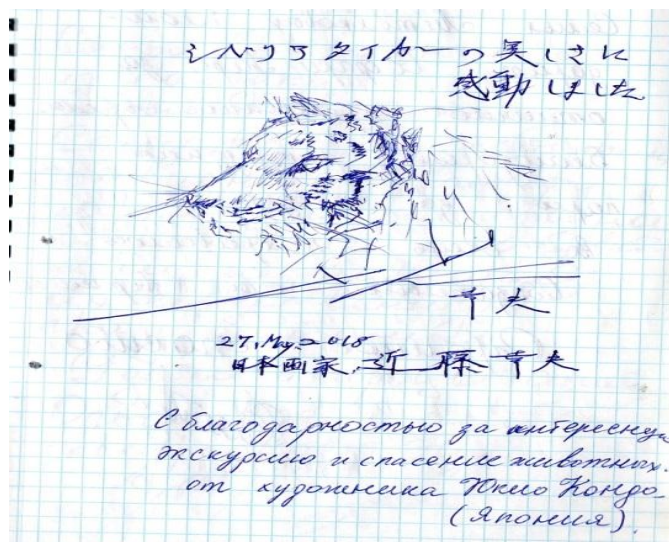 シベリアタイガーの美しさに
感動しました
幸夫
27, May, 2018
日本画家 近藤幸夫
С благодарностью за интересную
экскурсию и спасение животных.
от художника Юкио Кондо
(Япония).